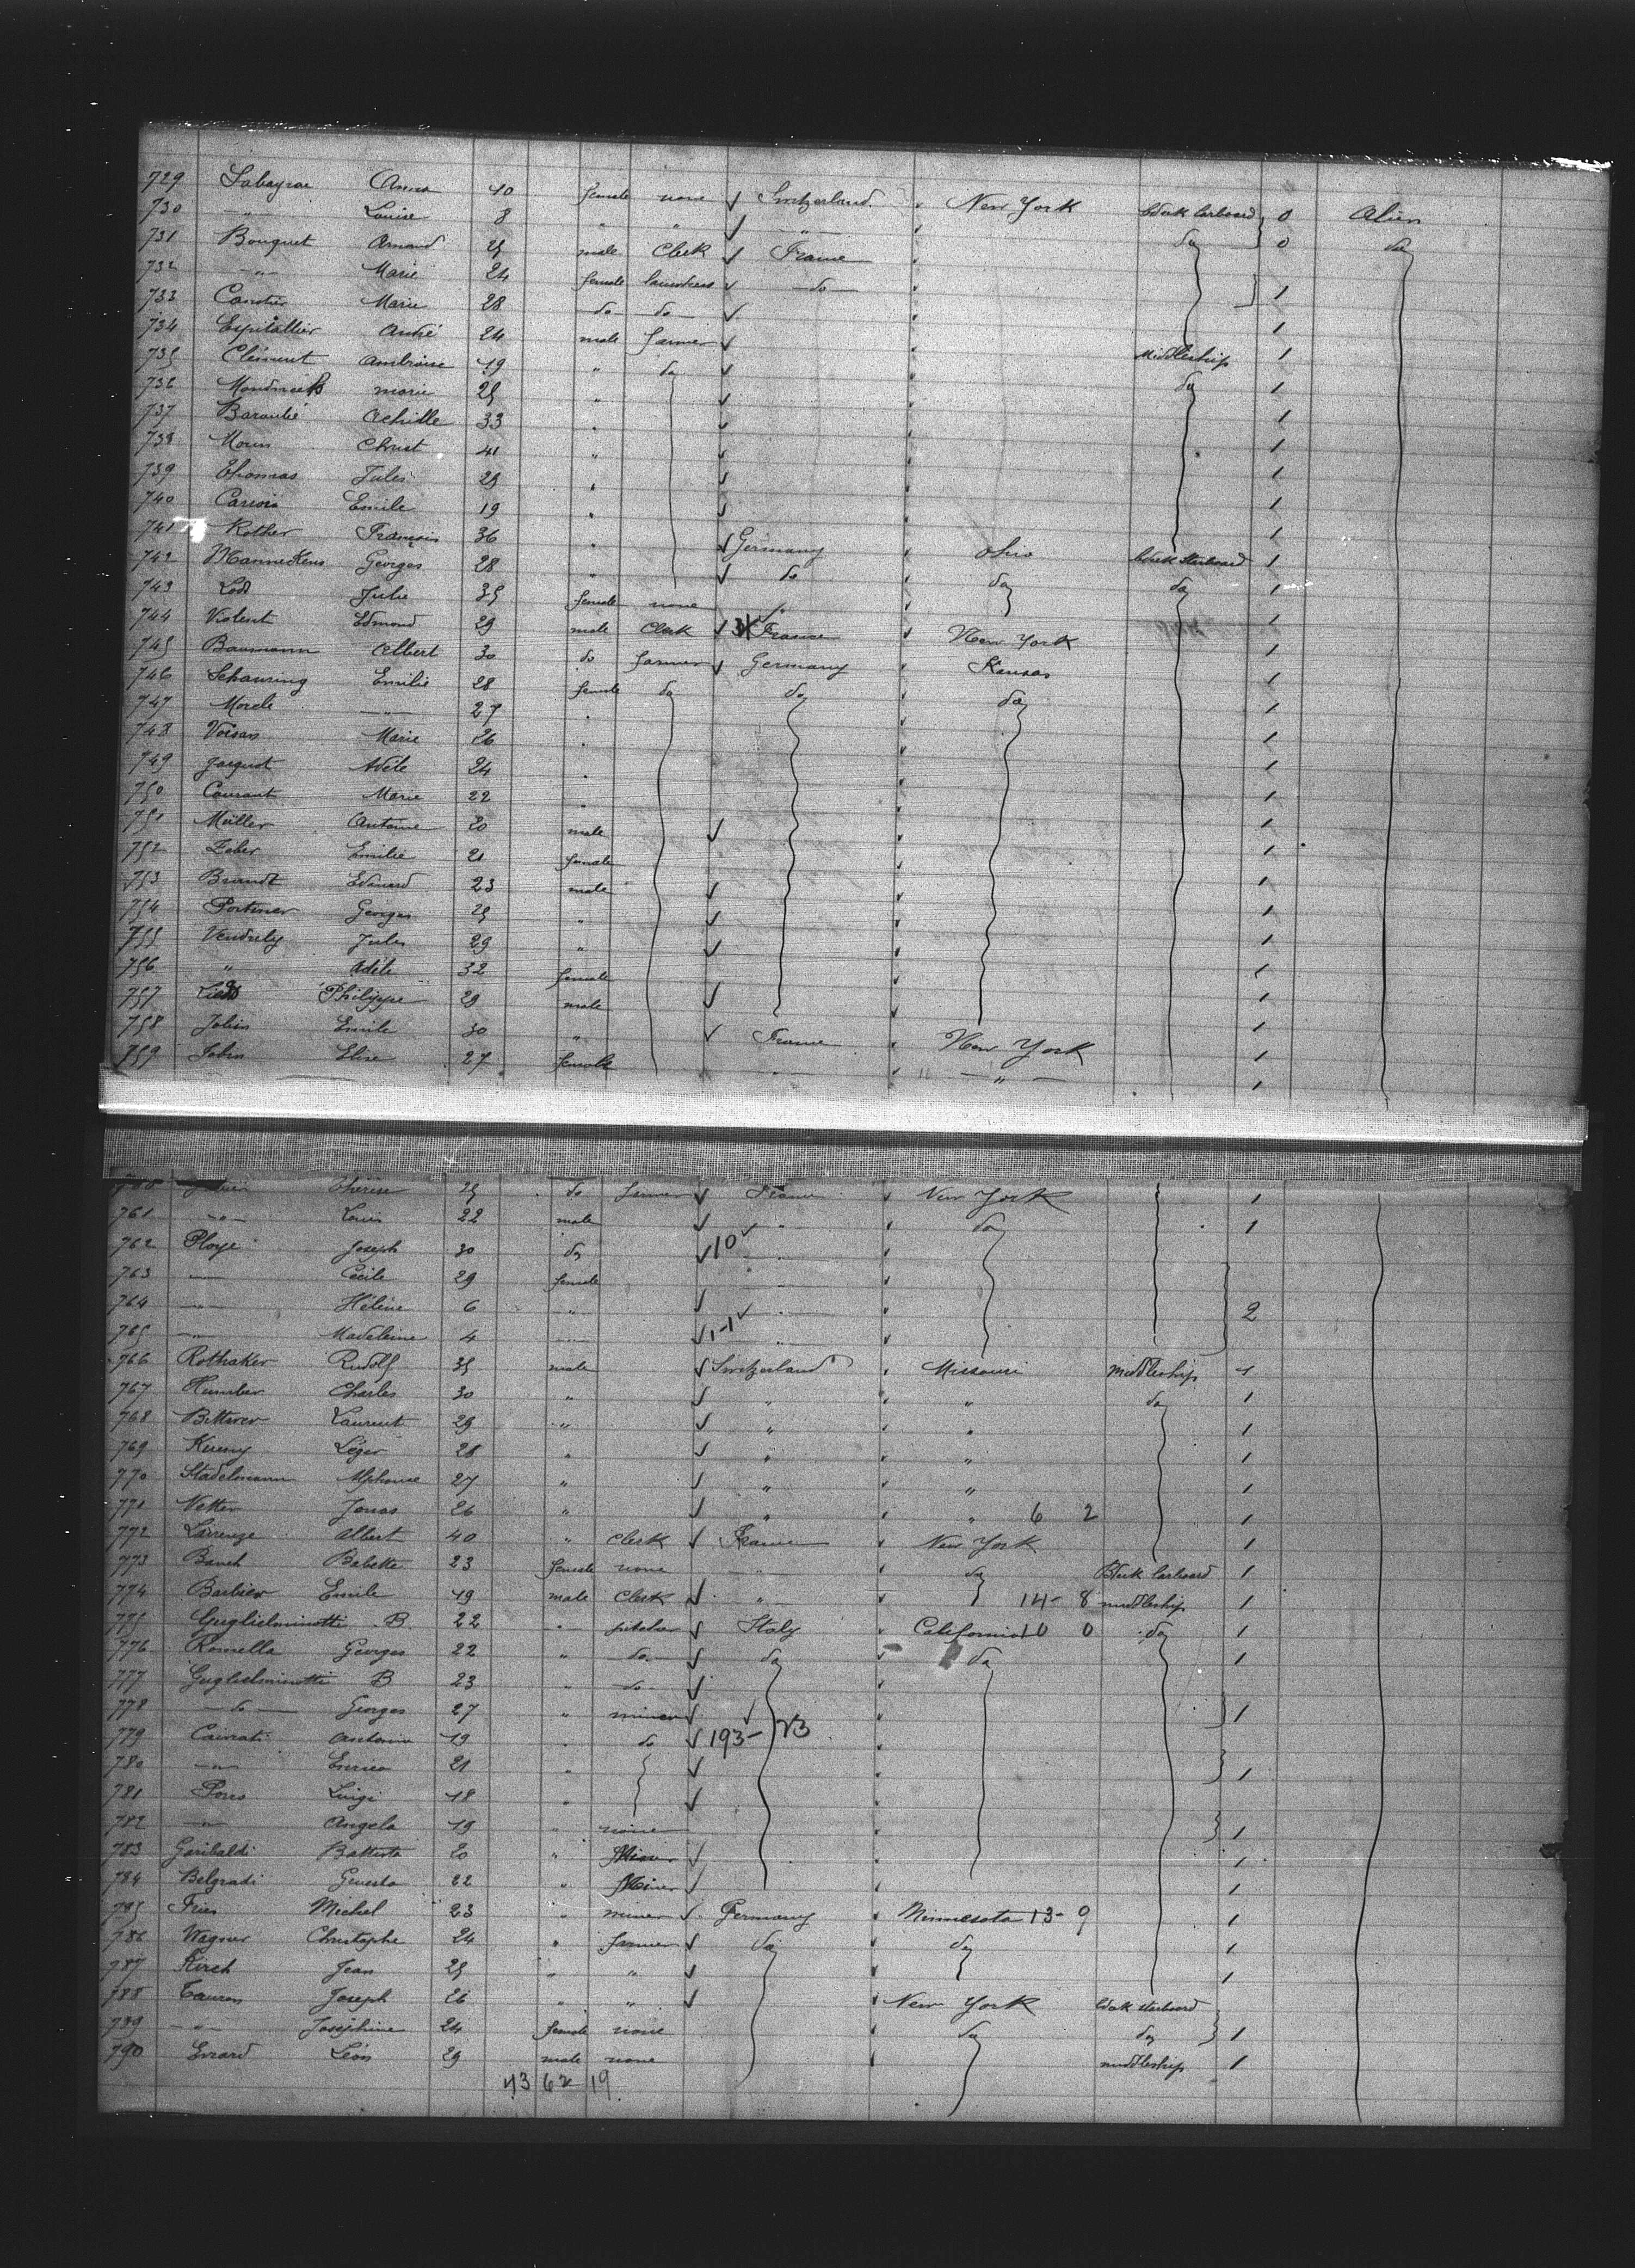 729 Anna 10 female none Switzerland New York Cdeck larboard 0 Alien
730 " Louise 8 " " " do 0 do
731 Bouquet Amand 25 male Clerk France
732 " Marie 24 female laundress do 1
733 Marie 28 do do 1
734 Espitallier André 24 male farmer Middleship 1
735 Clément Ambroise 19 " do do 1
736 marie 25 " 1
737 Achille 33 " 1
738 Christ 41 " 1
739 Thomas Jules 25 " 1
740 Emile 19 " 1
741 Rother François 36 " Germany Ohio Cdeck Starboard 1
742 Mannekens Georges 28 " do do do 1
743 Julie 35 female none " 1
744 Violent Edmond 29 male Clerk France New York 1
745 Baumann Albert 30 do farmer Germany Kansas 1
746 Schauring Emilie 28 female do do do 1
747 " 27 " 1
748 Marie 26 " 1
749 Jacquot Adèle 24 " 1
750 Courant Marie 22 " 1
751 Müller Antoine 20 male 1
752 Emilie 21 female 1
753 Brandt Edouard 23 male 1
754 Portmer Georges 25 " 1
755 Vendrely Jules 29 " 1
756 " Adèle 32 female 1
757 Philippe 29 male 1
758 Emile 30 " France New York 1
759 Elise 27 female " " 1
760 Thérèse 25 do farmer France New York 1
761 " Louis 22 male " do 1
762 Ploye Joseph 30 do 10 "
763 " Cécile 29 female "
764 " Hélène 6 " " 2
765 " Madeleine 4 " 1-1 "
766 Rothaker Rudolf 35 male Switzerland Missouri Middleship 1
767 Humber Charles 30 " " " do 1
768 Laurent 29 " " " 1
769 Kueny Léger 28 " " " 1
770 Stadelmann Alphonse 27 " " " 1
771 Vetter Jonas 26 " " " 6 2 1
772 Albert 40 " Clerk France New York 1
773 Babette 23 female none " do Cdeck larboard 1
774 Barbier Emile 19 male Clerk " 14- 8 middleship 1
775 Guglielminotti B. 22 " Italy California 10 0 do 1
776 Romella Georges 22 " do do do 1
777 Guglielminotti B 23 " do
778 do Georges 27 " miner 1
779 Cairati Antonio 19 " do 193- 23
780 " Enrico 21 " 1
781 Porro Luigi 18 "
782 " Angela 19 " none 1
783 Garibaldi Battista 20 " Miner 1
784 Belgradi 22 " Miner 1
785 Fries Michel 23 " miner Germany Minnesota 13- 9 1
786 Wagner Christophe 24 " farmer do do 1
787 Kirch Jean 25 " " 1
788 Joseph 26 " " New York Cdeck starboard
789 " Joséphine 24 female none do do 1
790 Evrard Léon 29 male none middleship 1
43 62 19